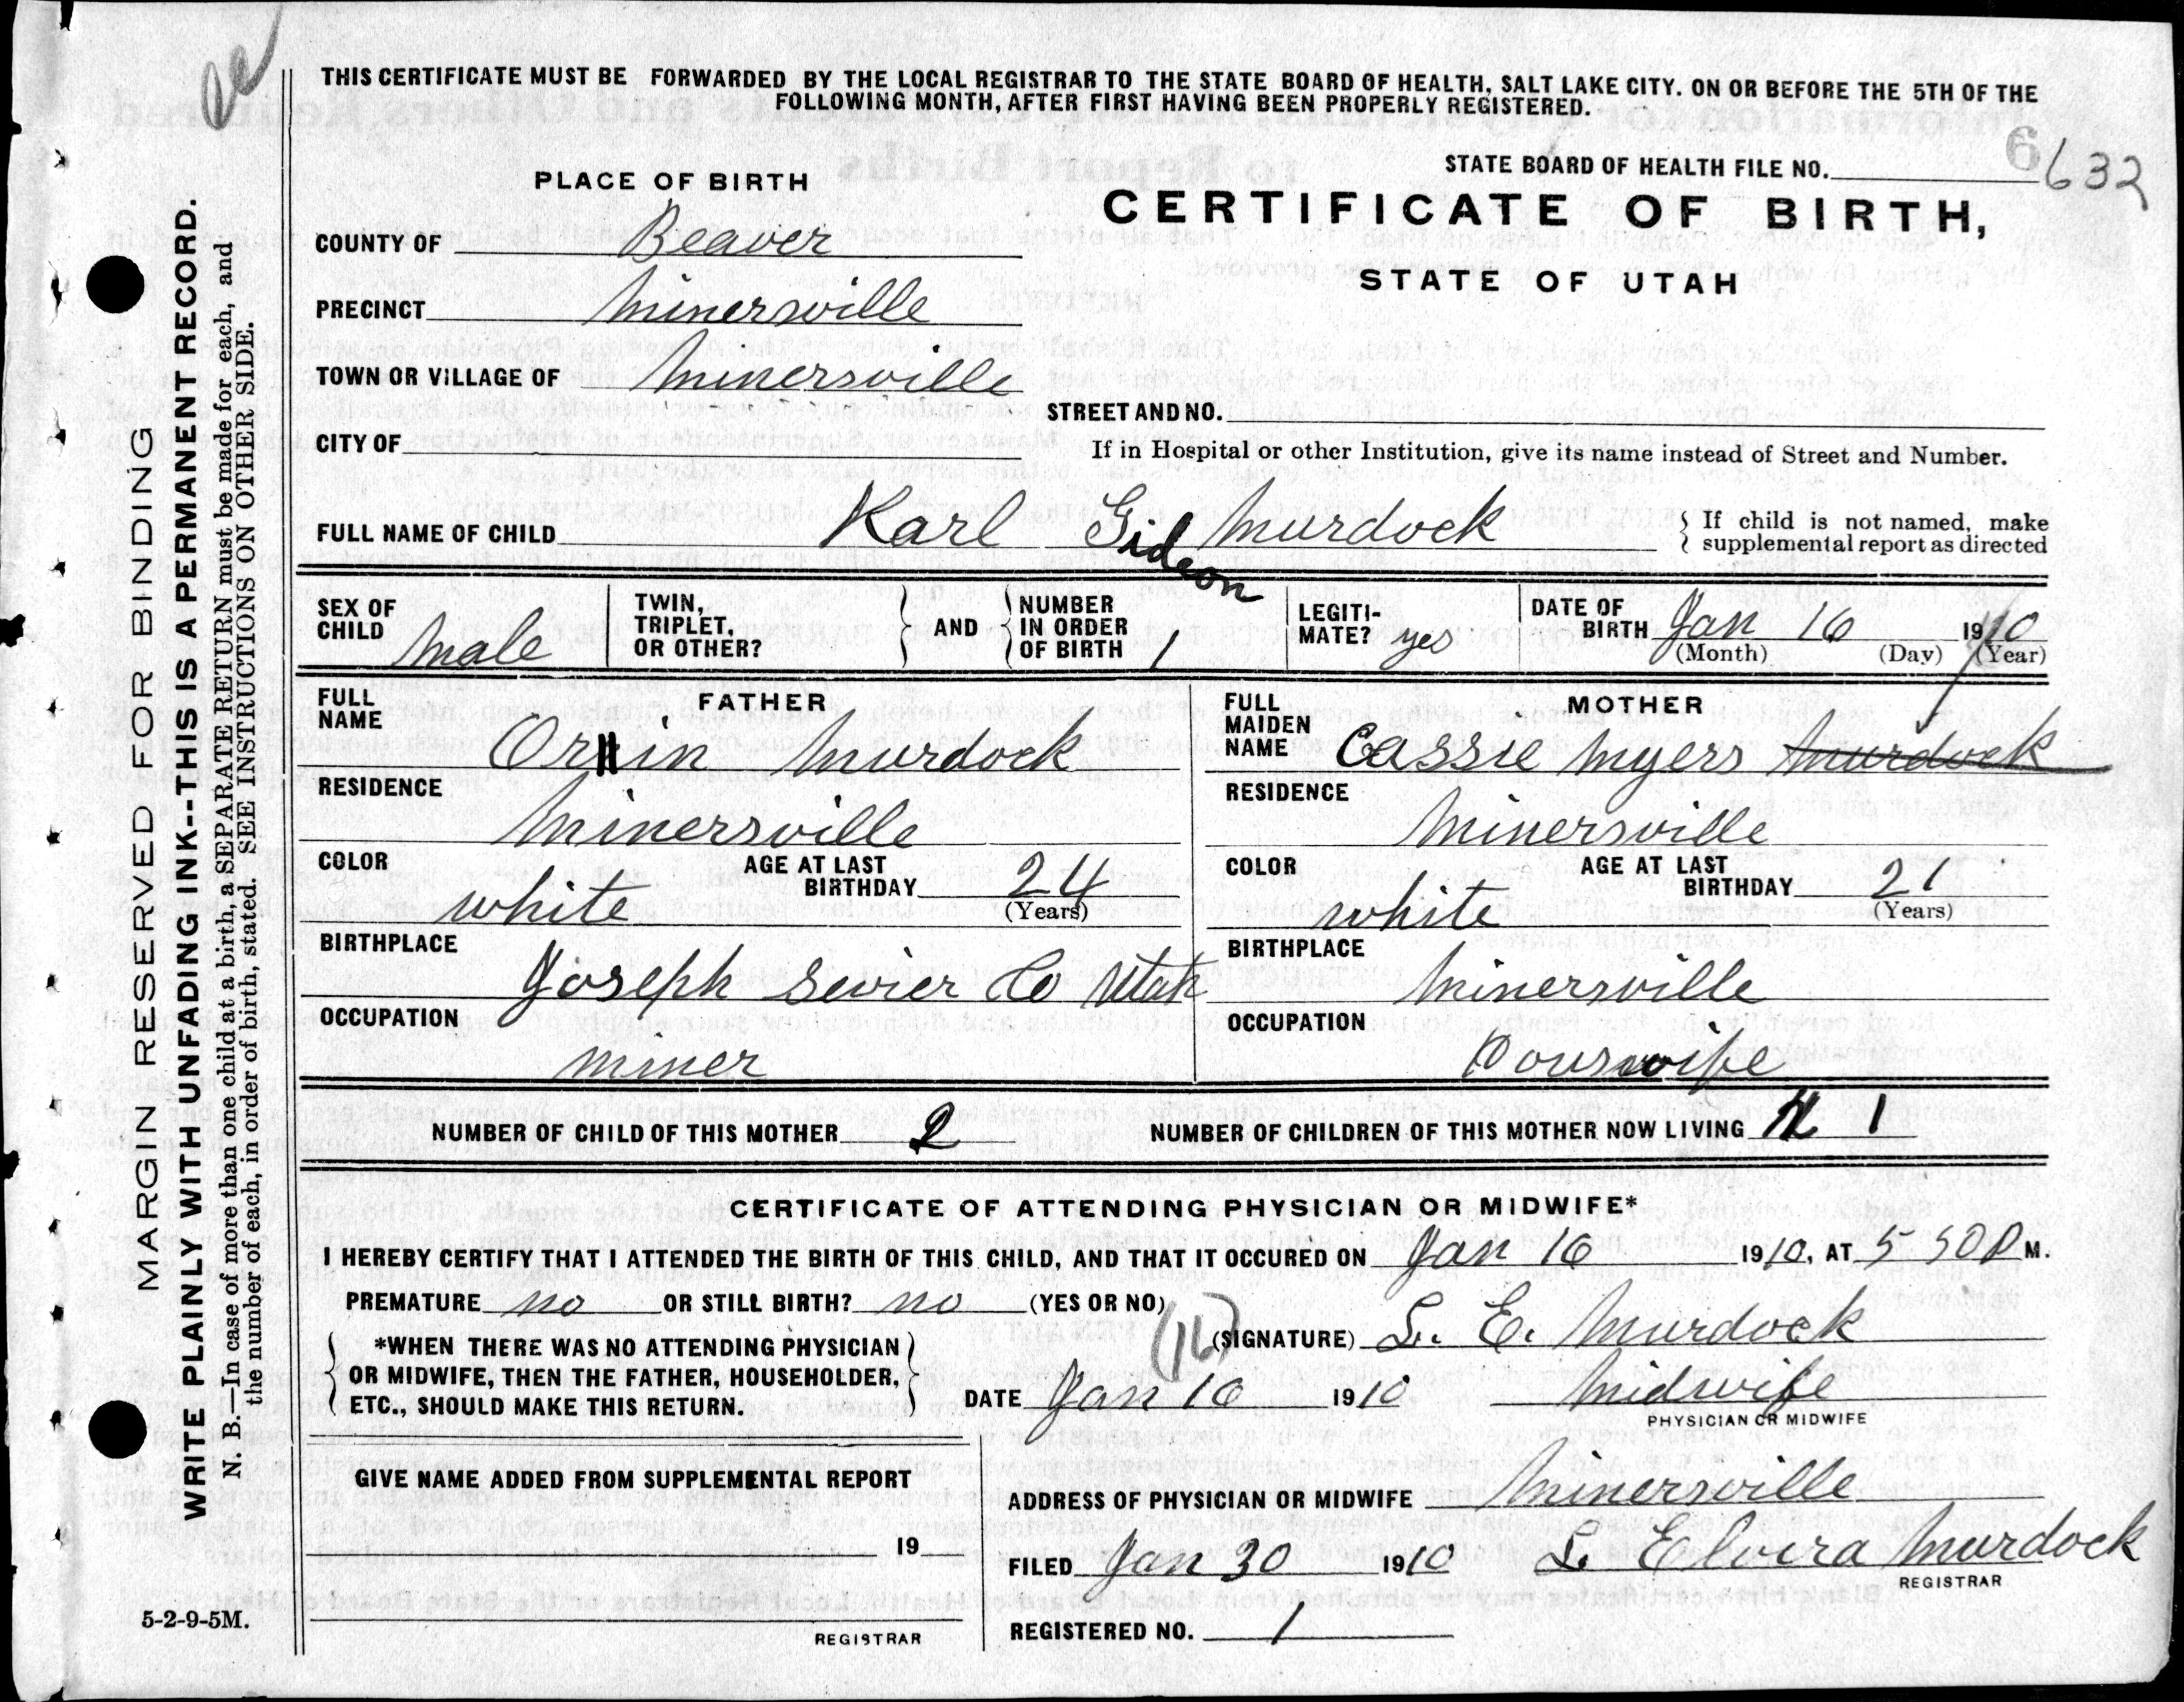 THIS CERTIFICATE MUST BE FORWARDED BY THE LOCAL REGISTRAR TO THE STATE BOARD OF HEALTH, SALT LAKE CITY. ON OR BEFORE THE 5TH OF THE
FOLLOWING MONTH, AFTER FIRST HAVING BEEN PROPERLY REGISTERED.
STATE BOARD OF HEALTH FILE NO. 6 632
PLACE OF BIRTH
CERTIFICATE OF BIRTH,
STATE OF UTAH
COUNTY OF Beaver
PRECINCT Minersville
TOWN OR VILLAGE OF Minersville
STREET AND NO.
CITY OF
If in Hospital or other Institution, give its name instead of Street and Number.
FULL NAME OF CHILD Karl Gideon Murdock
{ If child is not named, make
supplemental report as directed
SEX OF CHILD Male
TWIN, TRIPLET, OR OTHER?
} AND { NUMBER IN ORDER OF BIRTH 1
LEGITI-MATE? yes
DATE OF BIRTH Jan 16 1910
(Month) (Day) (Year)
FATHER
FULL NAME Orrin Murdock
RESIDENCE
Minersville
COLOR white
AGE AT LAST BIRTHDAY 24
(Years)
BIRTHPLACE
Joseph Sevier Co Utah
OCCUPATION
miner
MOTHER
FULL MAIDEN NAME Cassie Myers Murdock
RESIDENCE
Minersville
COLOR white
AGE AT LAST BIRTHDAY 21
(Years)
BIRTHPLACE
Minersville
OCCUPATION
Houswife
NUMBER OF CHILD OF THIS MOTHER 2
NUMBER OF CHILDREN OF THIS MOTHER NOW LIVING 1
CERTIFICATE OF ATTENDING PHYSICIAN OR MIDWIFE*
I HEREBY CERTIFY THAT I ATTENDED THE BIRTH OF THIS CHILD, AND THAT IT OCCURED ON Jan 16 1910, AT 5 50 P M.
PREMATURE no OR STILL BIRTH? no (YES OR NO)
(16)
(SIGNATURE) L. E. Murdock
{ *WHEN THERE WAS NO ATTENDING PHYSICIAN
OR MIDWIFE, THEN THE FATHER, HOUSEHOLDER,
ETC., SHOULD MAKE THIS RETURN. }
DATE Jan 16 1910
Midwife
PHYSICIAN OR MIDWIFE
GIVE NAME ADDED FROM SUPPLEMENTAL REPORT
19
REGISTRAR
ADDRESS OF PHYSICIAN OR MIDWIFE Minersville
FILED Jan 30 1910 L. Elvira Murdock
REGISTRAR
REGISTERED NO. 1
MARGIN RESERVED FOR BINDING
WRITE PLAINLY WITH UNFADING INK--THIS IS A PERMANENT RECORD.
N. B.—In case of more than one child at a birth, a SEPARATE RETURN must be made for each, and
the number of each, in order of birth, stated. SEE INSTRUCTIONS ON OTHER SIDE.
5-2-9-5M.